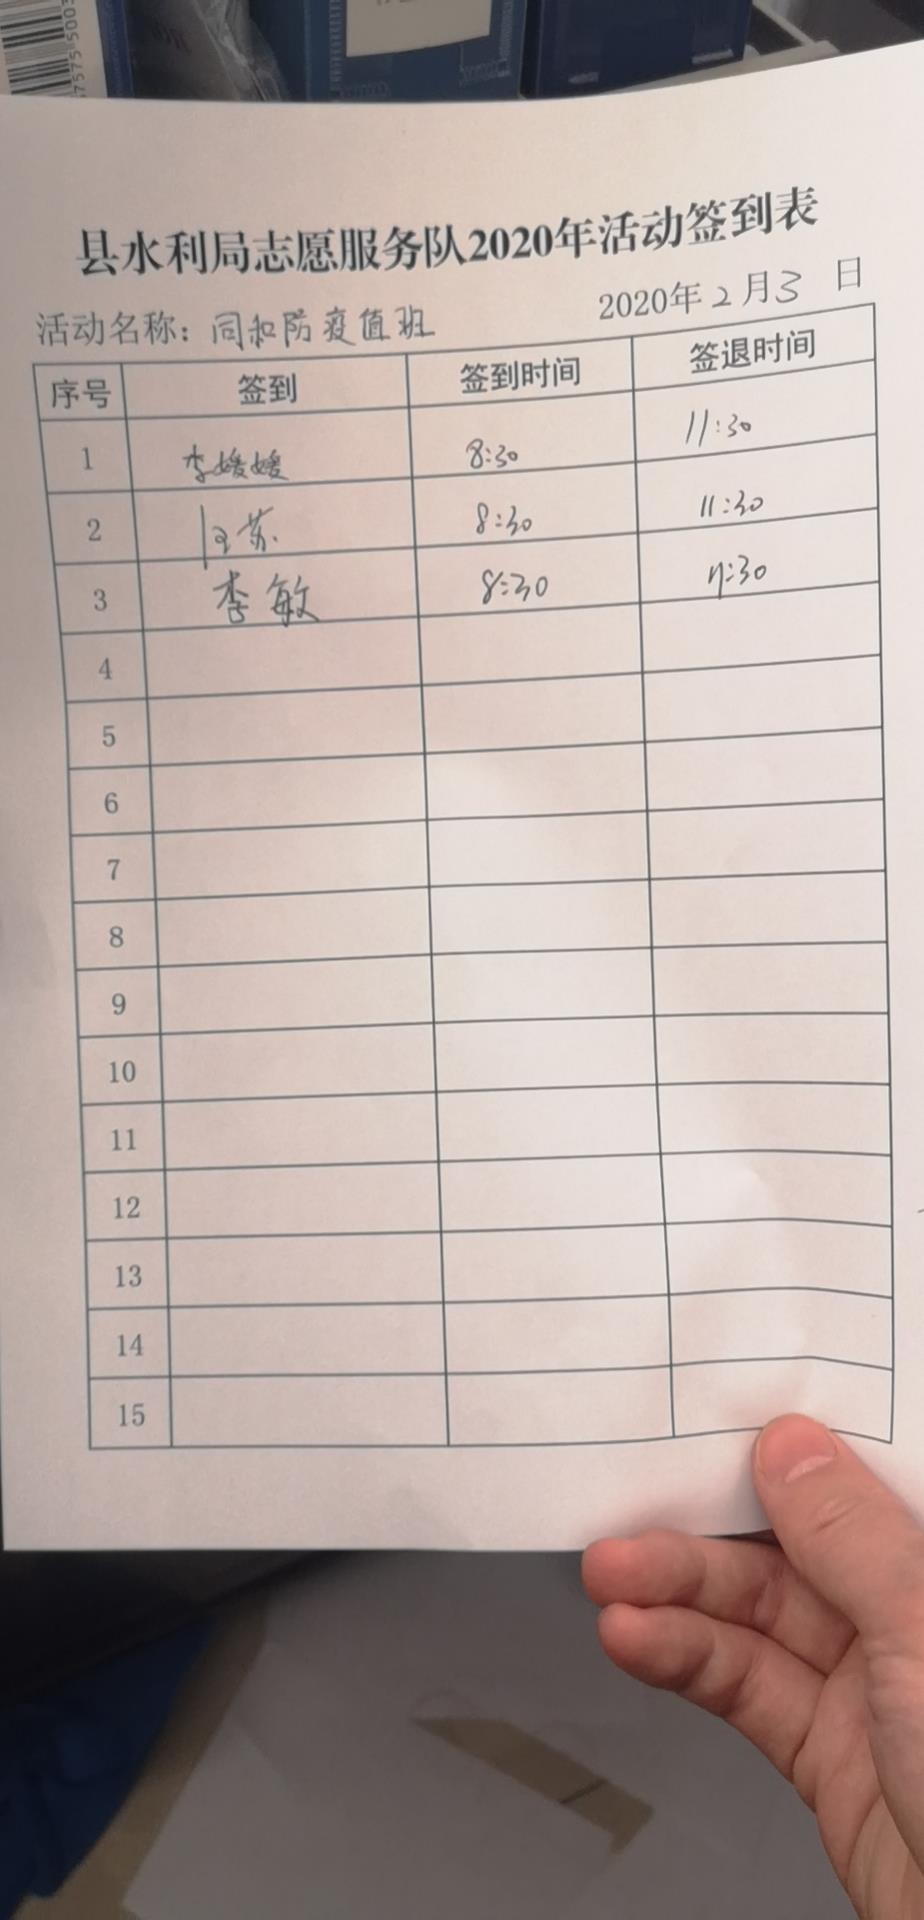 县水利局志愿服务队2020年活动签到表
活动名称：同和防疫值班 2020年2月3日
序号 签到 签到时间 签退时间
1 李媛媛 8:30 11:30
2 汪苏 8:30 11:30
3 李敏 8:30 11:30
4
5
6
7
8
9
10
11
12
13
14
15